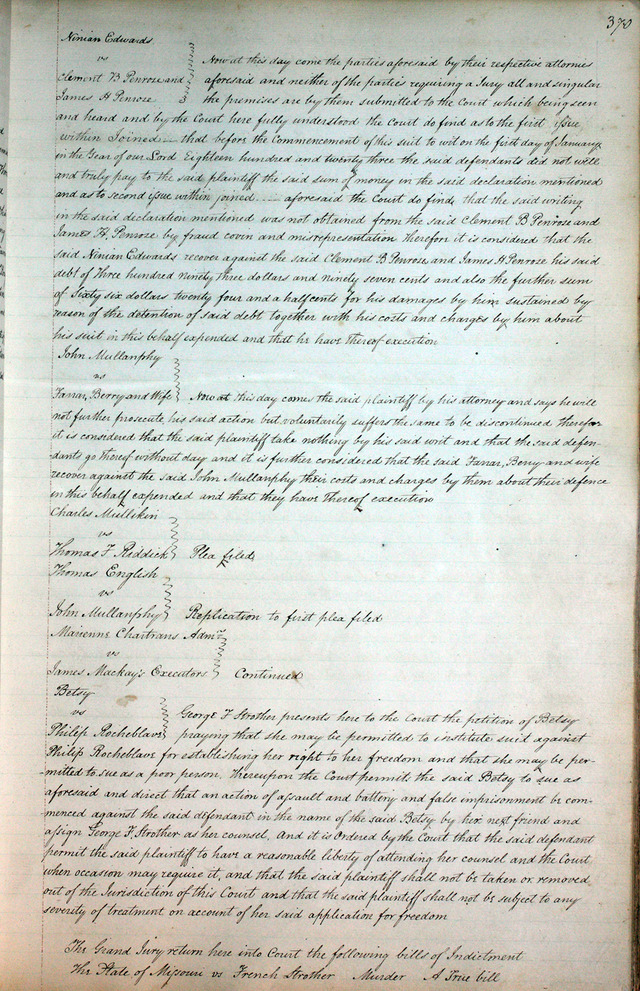 370
Ninian Edwards
vs Now at this day come the parties aforesaid by their respective attornies
Clement B Penrose and aforesaid and neither of the parties requiring a Jury all and singular
James H Penrose the premises are by them submitted to the Court which being seen
and heard and by the Court here fully understood the Court do find as to the first issue
within Joined that before the Commencement of this suit to wit on the first day of January
in the Year of our Lord Eighteen hundred and twenty three the said defendants did not well
and truly pay to the said plaintiff the said sum of money in the said declaration mentioned
and as to second issue within joined aforesaid the Court do find, that the said writing
in the said declaration mentioned was not obtained from the said Clement B Penrose and
James H. Penrose by fraud covin and misrepresentation Therefore it is considered that the
said Ninian Edwards recover against the said Clement B Penrose, and James H Penrose his said
debt of Three hundred ninety three dollars and ninety seven cents and also the further sum
of Sixty six dollars twenty four and a half cents for his damages by him sustained by
reason of the detention of said debt together with his costs and charges by him about
his suit in this behalf expended and that he have thereof execution
John Mullanphy
vs
Farrar, Berry and Wife Now at this day comes the said plaintiff by his attorney and says he will
not further prosecute, his said action but voluntarily suffers the same to be discontinued Therefore
it is considered that the said plaintiff take nothing by his said writ and that the said defen-
dants go thereof without day and it is further considered that the said Farrar, Berry and wife
recover against the said John Mullanphy their costs and charges by them about their defence
in this behalf expended and that they have thereof execution
Charles Mullikin
vs
Thomas F Riddick Plea filed
Thomas English
vs
John Mullanphy Replication to first plea filed
Marienne Chartrans Admr
vs
James Mackay's Executors Continued
Betsy
vs George F Strother presents here to the Court the petition of Betsy
Philip Rocheblave praying that she may be permitted to institute suit against
Philip Rocheblave for establishing her right to her freedom and that she may be per-
mitted to sue as a poor person, thereupon the Court permits the said Betsy to sue as
aforesaid and direct that an action of assault and battery and false imprisonment be com-
menced against the said defendant in the name of the said Betsy by her next friend and
assign George F. Strother as her counsel, and it is Ordered by the Court that the said defendant
permit the said plaintiff to have a reasonable liberty of attending her counsel and the Court
when occasion may require it, and that the said plaintiff shall not be taken or removed
out of the Jurisdiction of this Court and that the said plaintiff shall not be subject to any
severity of treatment on account of her said application for freedom
The Grand Jury return here into Court the following bills of Indictment
The State of Missouri vs French Strother Murder A True bill